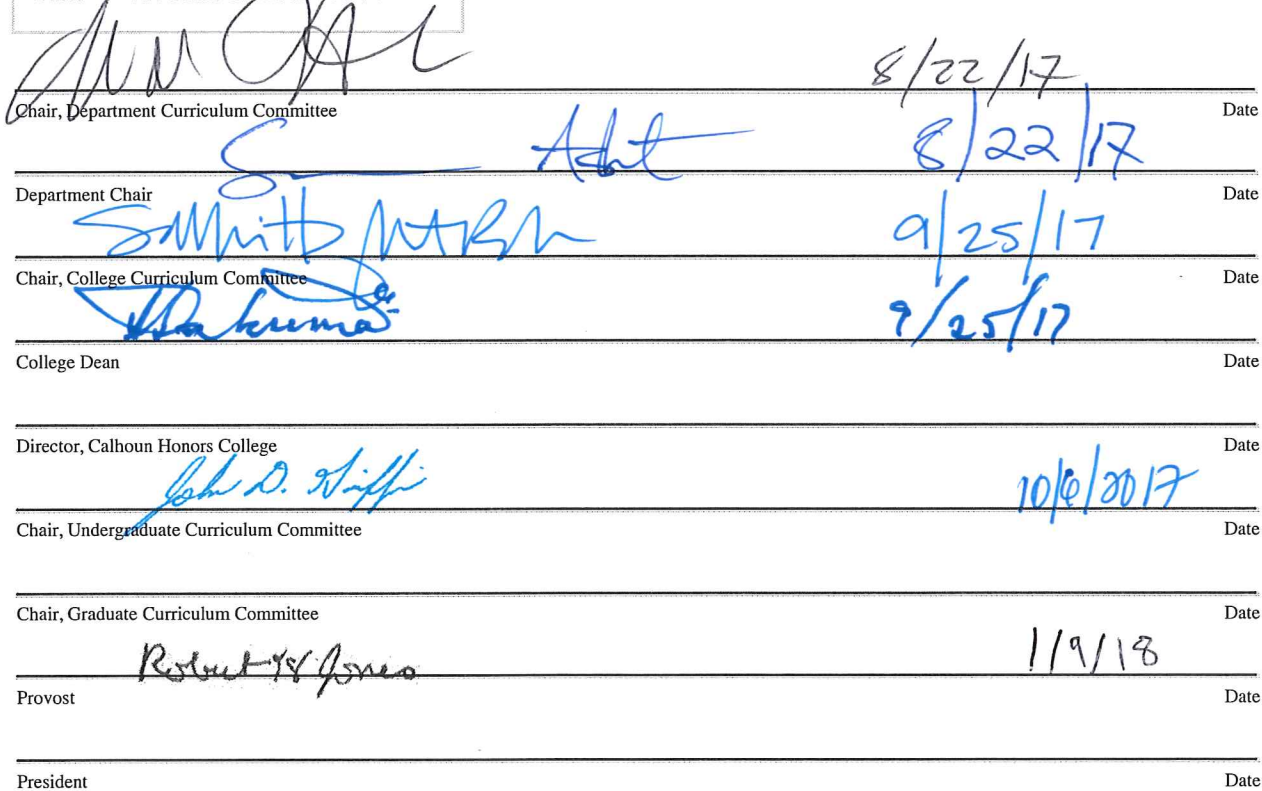 8/22/17
Chair, Department Curriculum Committee Date
8/22/17
Department Chair Date
9/25/17
Chair, College Curriculum Committee Date
9/25/17
College Dean Date
Director, Calhoun Honors College Date
John D. 10/6/2017
Chair, Undergraduate Curriculum Committee Date
Chair, Graduate Curriculum Committee Date
Robert H Jones 1/9/18
Provost Date
President Date